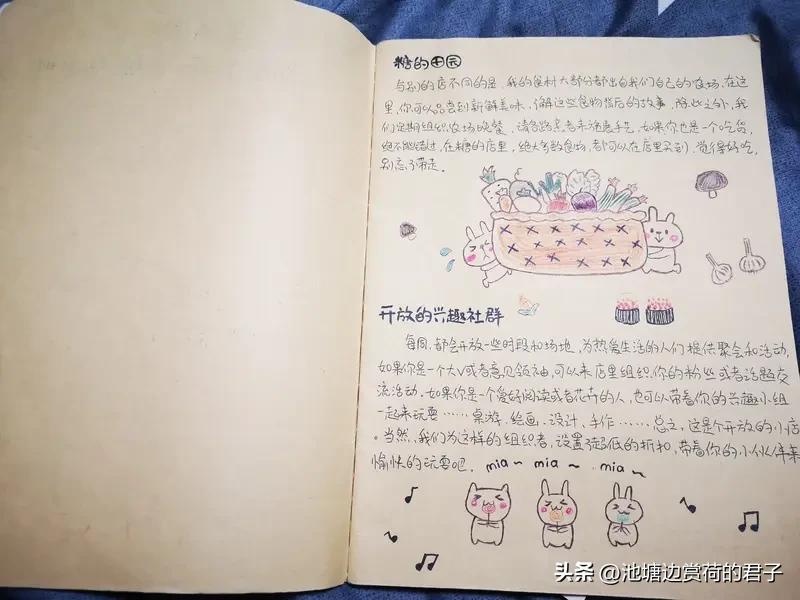 糖的田园
与别的店不同的是,我的食材大部分都出自我们自己的农场.在这
里,你可以品尝到新鲜美味,了解这些食物背后的故事,除此之外,我
们定期组织农场晚餐,请各路来者未施展手艺,如果你也是一个吃货,
绝不能错过,在糖的店里,绝大多数食物,都可以在店里买到,觉得好吃,
别忘了带走。
开放的兴趣社群
每周,都会开放一些时段和场地,为热爱生活的人们提供聚会和活动,
如果你是一个大V或者意见领袖,可以来店里组织你的粉丝或者话题交
流活动.如果你是一个爱好阅读或者花卉的人,也可以带着你的兴趣小组
一起来玩耍……桌游、绘画、设计、手作……总之,这是个开放的小店
。当然,我们为这样的组织者,设置了超低的折扣,带着你的小伙伴来
愉快的玩耍吧. mia~ mia~ mia~
头条 @池塘边赏荷的君子